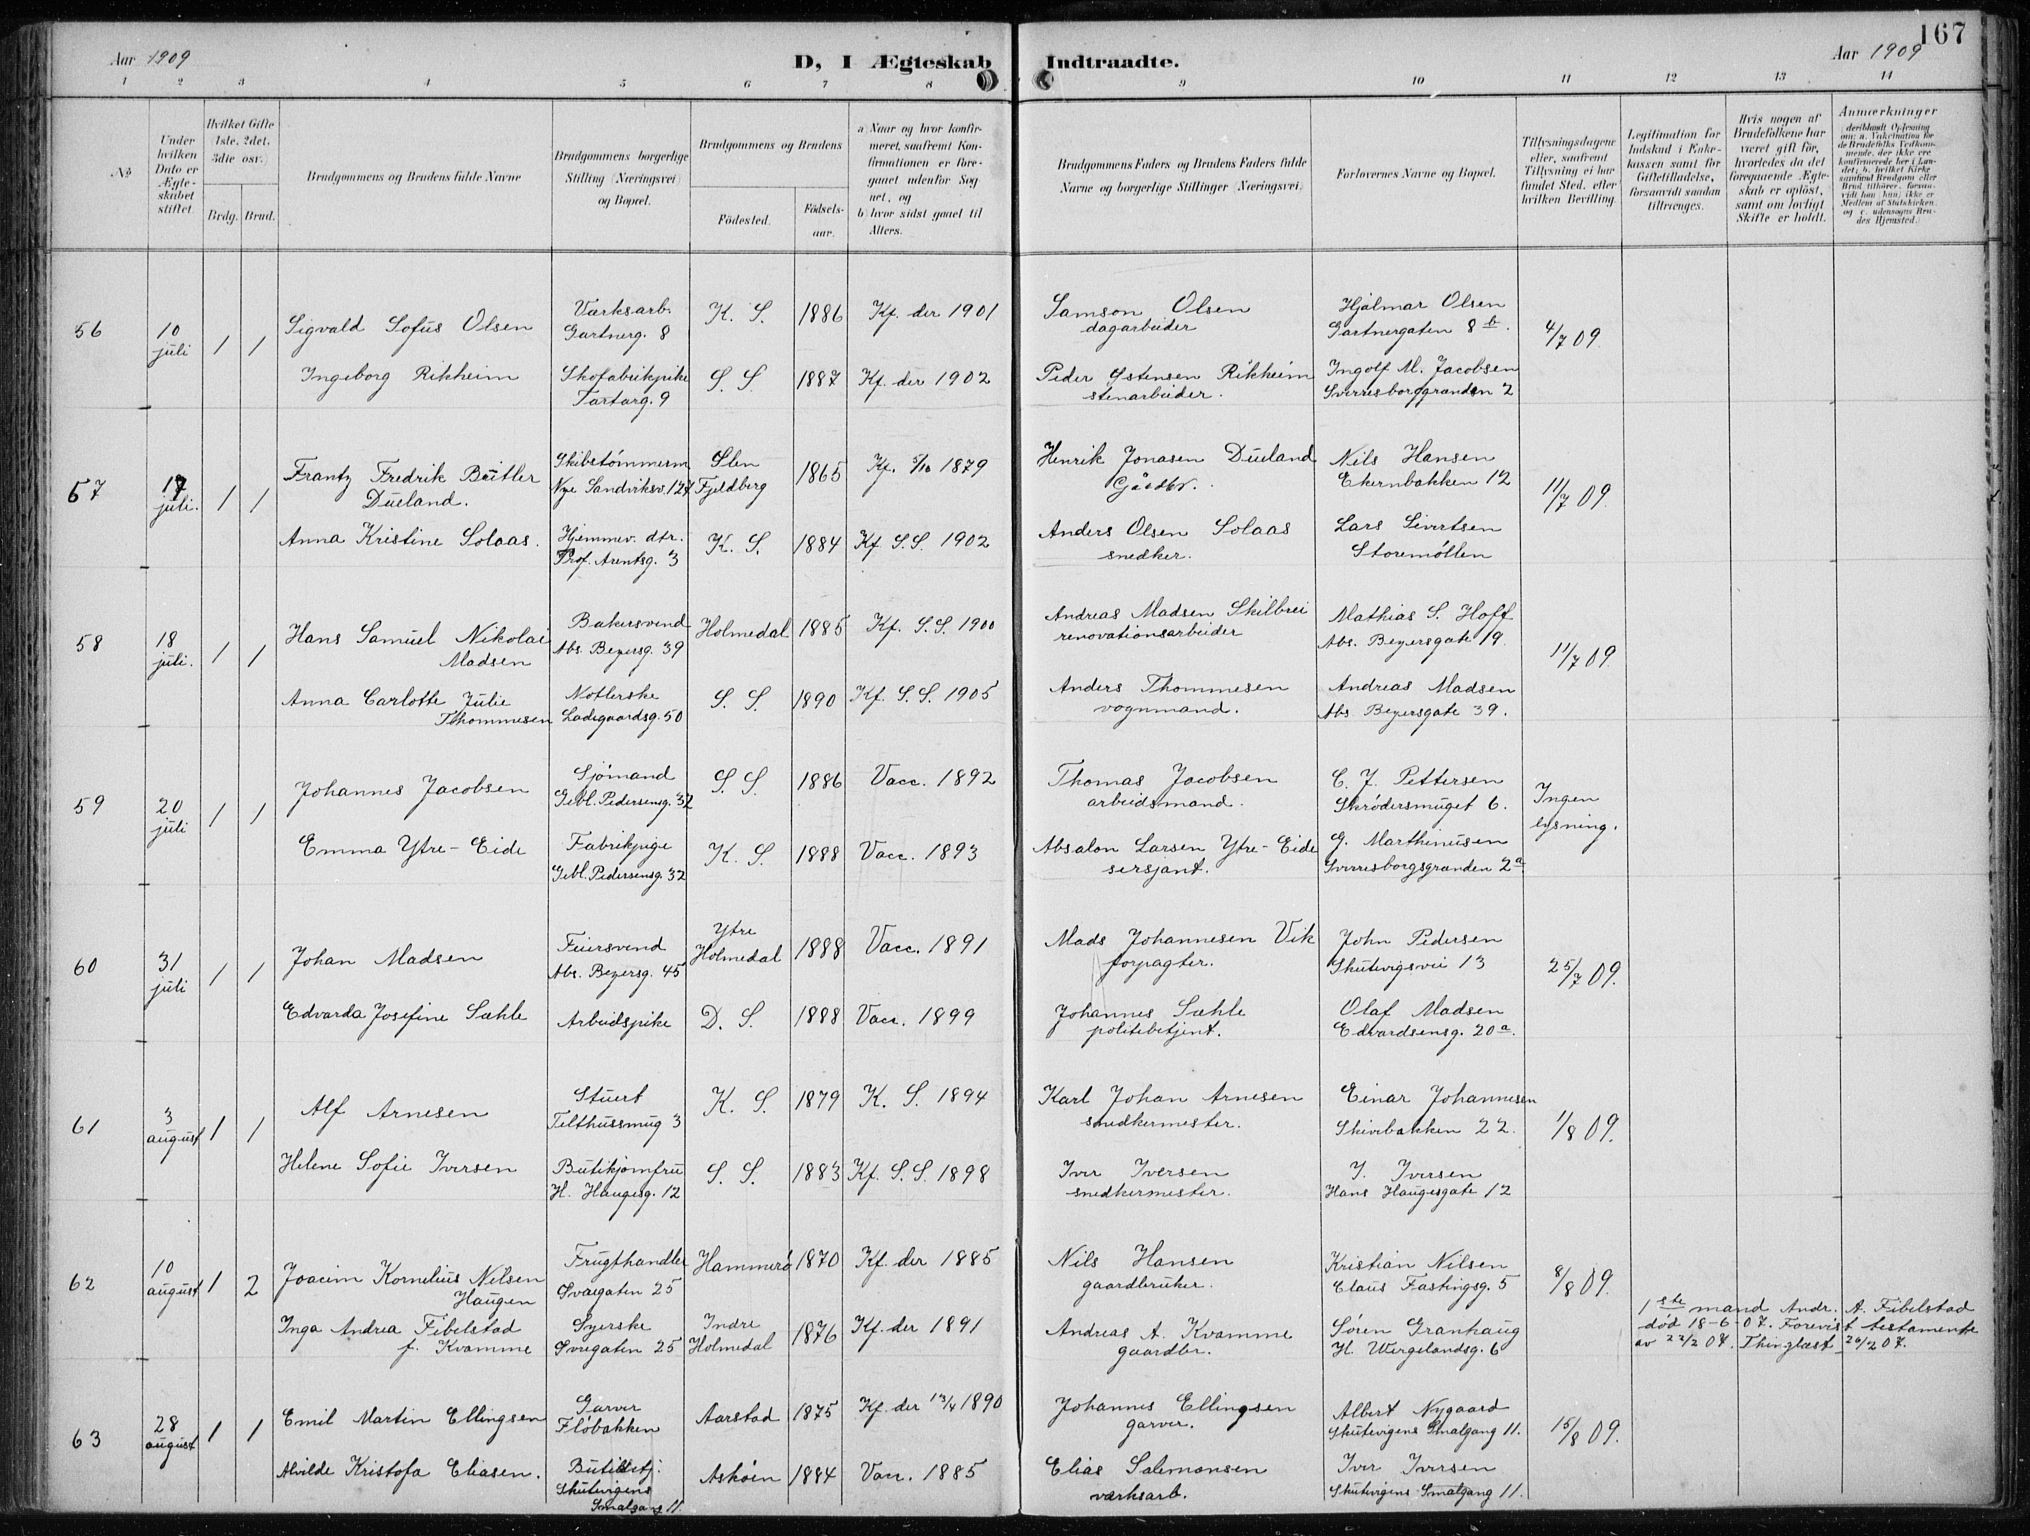 167
Aar 1909
D, I Ægteskab Indtraadte.
Aar 1909
1 2 3 4 5 6 7 8 9 10 11 12 13 14
No.
Under hvilken Dato er Ægteskabet stiftet.
Hvilket Gifte (1ste, 2det, 3die osv.)
Brdg. Brud.
Brudgommens og Brudens fulde Navne
Brudgommens borgerlige Stilling (Næringsvei) og Bopæl.
Brudgommens og Brudens
Födested.
Födsels-aar.
a) Naar og hvor konfirmeret, saafremt Konfirmationen er foregaaet udenfor Sognet, og
b) hvor sidst gaaet til Alters.
Brudgommens Faders og Brudens Faders fulde Navne og borgerlige Stillinger (Næringsvei)
Forlovernes Navne og Bopæl.
Tillysningsdagene eller, saafremt Tillysning ei har fundet Sted, efter hvilken Bevilling.
Legitimation for Indskud i Enkekassen samt for Giftetilladelse, forsaavidt saadan tiltrænges.
Hvis nogen af Brudefolkene har været gift för, hvorledes da det foregaaende Ægteskab er oplöst, samt om lovligt Skifte er holdt.
Anmærkninger
56 10 juli 1 1
Sigvald Sofus Olsen
Værksarb. Gartnerg. 8
K. S. 1886 Kf. der 1901
Samson Olsen dagarbeider
Hjalmar Olsen Gartnergaten 8 b.
4/7 09.
Ingeborg Rikheim
Skofabrikpike Tartarg. 9
S. S. 1887 Kf. der 1902
Peder Østensen Rikheim stenarbeider.
Ingolf M. Jacobsen Sverresborggranden 2
57 17 juli. 1 1
Frantz Fredrik Beitler Dueland.
Skibstømmerm. Nye Sandviksv. 124
Fjeldberg 1865 Kf. 5/10 1879
Henrik Jonasen Dueland Gårdbr.
Nils Hansen Ekernbakken 12
11/7 09.
Anna Kristine Solaas.
Hjemmev. dtr. Prof. Arentsg. 3
K. S. 1884 Kf. S. S. 1902
Anders Olsen Solaas snedker.
Lars Sivertsen Storemöllen
58 18 juli. 1 1
Hans Samuel Nikolai Madsen
Bakersvend Abs. Beyersg. 39
Holmedal 1885 Kf. S. S. 1900
Andreas Madsen Skilbrei renovationsarbeider
Mathias S. Hoff Abs. Beyersgate 19.
11/7 09.
Anna Carlotte Julie Thommesen
Notlerske Ladegaardsg. 50
S. S. 1890 Kf. S. S. 1905
Anders Thommesen vognmand.
Andreas Madsen Abs Beyersgate 39.
59 20 juli 1 1
Johannes Jacobsen
Sjömand Gebl. Pedersensg. 32
S. S. 1886 Vacc. 1892
Thomas Jacobsen arbeidsmand.
C. J. Pettersen Skrödersmuget 6.
Ingen lysning.
Emma Ytre-Eide
Fabrikpige Gebl. Pedersensg. 32
K. S. 1888 Vacc. 1893
Absalon Larsen Ytre-Eide sersjant.
G. Marthinusen Sverresborgsgranden 2 a
60 31 juli 1 1
Johan Madsen
Feiersvend Abs. Beyersg. 45
Ytre Holmedal 1888 Vacc. 1891
Mads Johannesen Vik forpagter.
John Pedersen Skutevigsvei 13
25/7 09.
Edvarda Josefine Sæhle
Arbeidspike
D. S. 1888 Vacc. 1899
Johannes Sæhle politibetjent.
Olaf Madsen Edvardsensg. 20 a.
61 3 august 1 1
Alf Arnesen
Stuert Telthussmug 3
K. S. 1879 K. S. 1894
Karl Johan Arnesen snedkermester.
Einar Johannesen Skivebakken 22.
1/8 09.
Helene Sofie Iversen
Butikjomfru H. Haugesg. 12
S. S. 1883 Kf. S. S. 1898
Iver Iversen snedkermester.
I. Iversen Hans Haugesgate 12
62 10 august 1 2
Joacim Kornelius Nilsen Haugen
Frugthandler Svaregaten 25
Hammerö 1870 Kf. der 1885
Nils Hansen gaardbruker.
Kristian Nilsen Claus Fastingsg. 5
8/8 09.
Inga Andrea Fibelstad f. Kvamme
Syerske Svaregaten 25
Indre Holmedal 1876 Kf. der 1891
Andreas A. Kvamme gaardbr.
Søren Granhaug H. Wergelandsg. 6
1ste mand Andr. A. Fibelstad
död 18-6-07. Forevist testamente
av 22/2 07. Thinglæst 26/2 07.
63 28 august 1 1
Emil Martin Ellingsen
Garver Flöbakken
Aarstad 1875 Kf. der 13/4 1890
Johannes Ellingsen garver.
Albert Nygaard Skutevigens Smalgang 11.
15/8 09.
Alvilde Kristofa Eliasen.
Butikbetj. Skutevigens Smalgang 11.
Asköen 1884 Vacc. 1885
Elias Salemonsen værksarb.
Iver Iversen Skutevigens Smalgang 11.